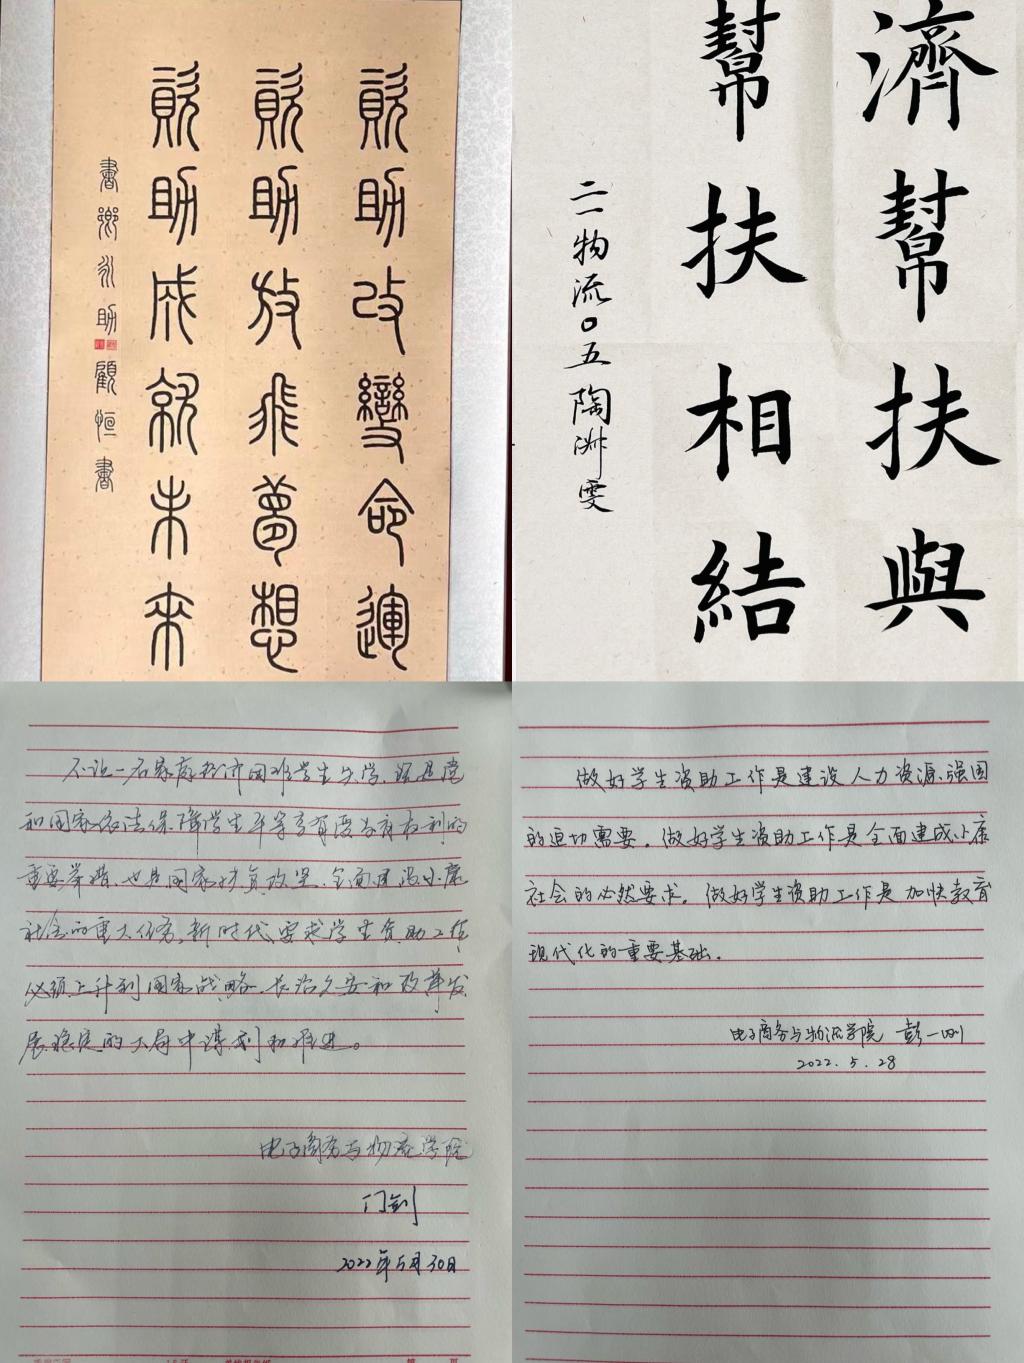 資助改變命運
資助放飛夢想
資助成就未來
書鄉永助 顧恒書
濟幫扶與
幫扶相結
二一物流〇五陶渊雯
不让一名家庭经济困难学生失学,既是党
和国家依法保障学生平等享有受教育权利的
重要举措,也是国家扶贫攻坚、全面建设小康
社会的重大任务,新时代要求学生资助工作
必须上升到国家战略、长治久安和改革发
展稳定的大局中谋划和推进。
电子商务与物流学院
门剑
2022年5月30日
做好学生资助工作是建设人力资源强国
的迫切需要。做好学生资助工作是全面建成小康
社会的必然要求。做好学生资助工作是加快教育
现代化的重要基础。
电子商务与物流学院 彭一刚
2022.5.28